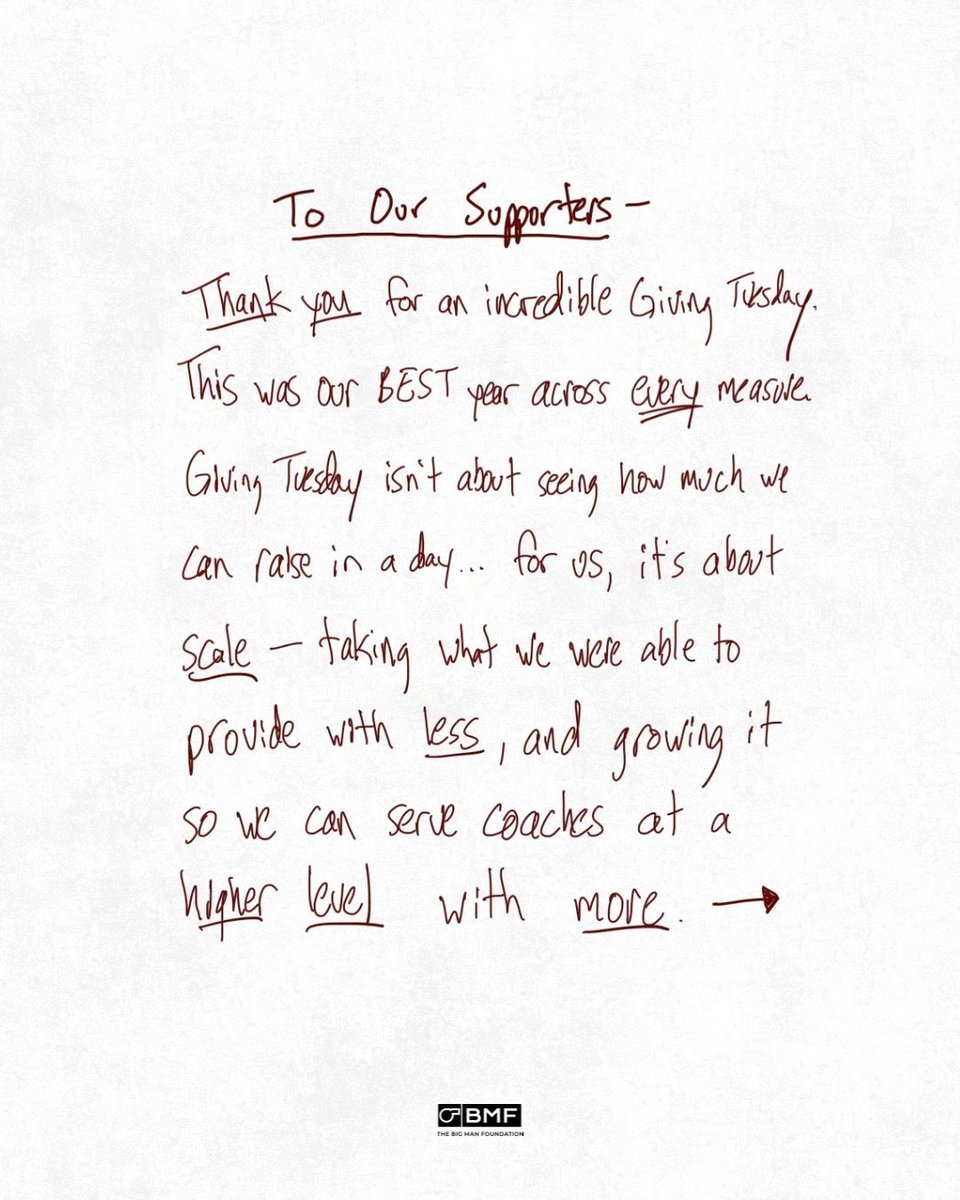 To Our Supporters –
Thank you for an incredible Giving Tuesday.
This was our BEST year across every measure.
Giving Tuesday isn't about seeing how much we
can raise in a day... for us, it's about
scale – taking what we were able to
provide with less, and growing it
so we can serve coaches at a
higher level with more. →
BMF
THE BIG MAN FOUNDATION